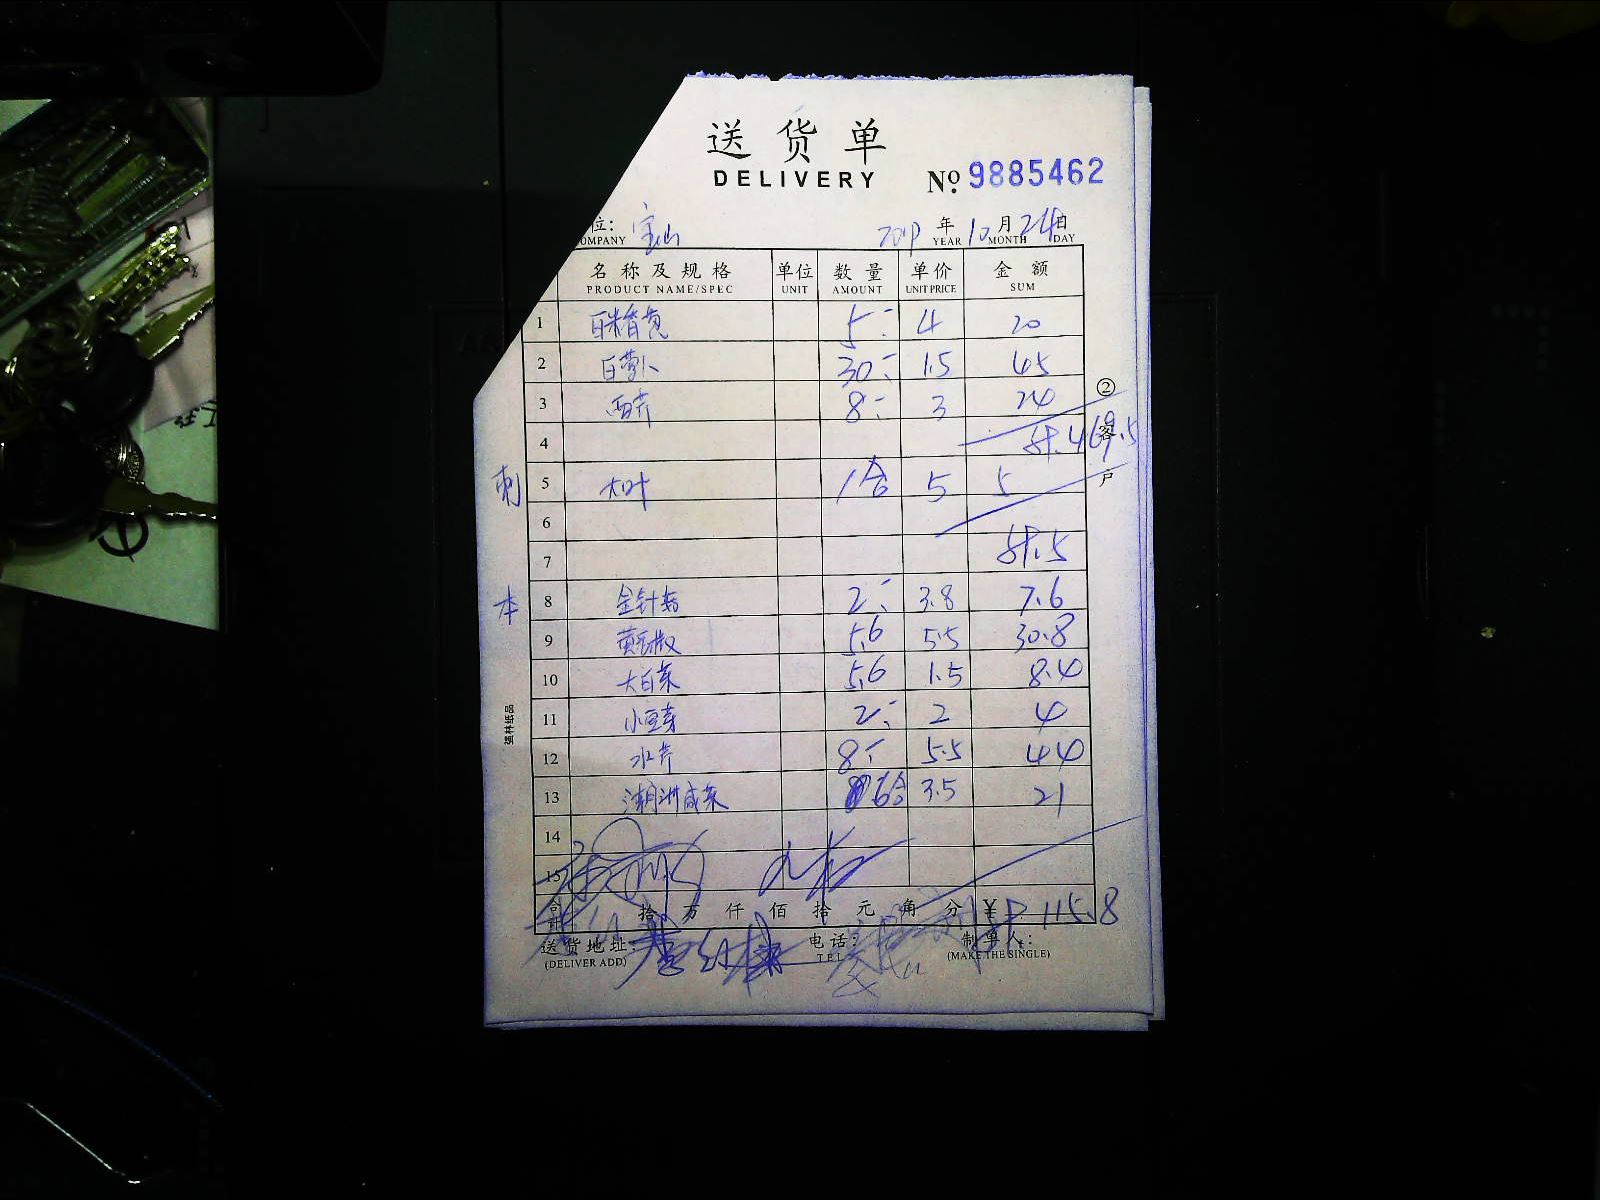 送货单
DELIVERY
No. 9885462
位: 宝山 2019 年 10 月 24 日
OMPANY YEAR MONTH DAY
名称及规格 单位 数量 单价 金额
PRODUCT NAME/SPEC UNIT AMOUNT UNIT PRICE SUM
1 5 4 20
2 白萝卜 30 1.5 45
3 西芹 8 3 24
4 计.469.5
5 大叶 1合 5 5
6
7 计.5
8 金针菇 2 3.8 7.6
9 5.6 5.5 30.8
10 大白菜 5.6 1.5 8.4
11 小豆芽 2 2 4
12 水芹 8 5.5 44
13 潮洲咸菜 6合 3.5 21
14
15
合计 拾 万 仟 佰 拾 元 角 分 ¥ 115.8
送货地址: 电话: 制单人:
(DELIVER ADD) TEL (MAKE THE SINGLE)
② 客户
刺
本
强林纸品